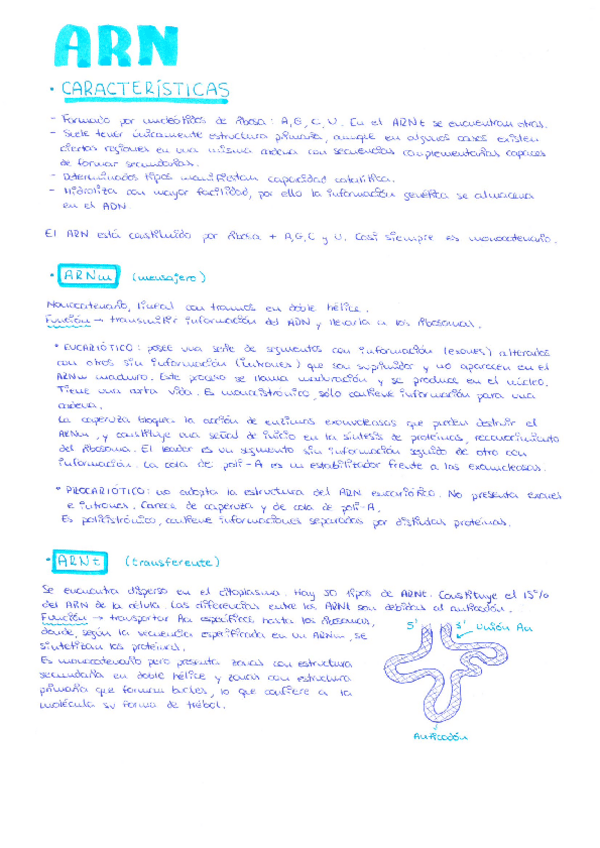 ARN
• CARACTERÍSTICAS
- Formado por nucleótidos de ribosa: A, G, C, U. En el ARNt se encuentran otras.
- Suele tener únicamente estructura primaria, aunque en algunos casos existen
ciertas regiones en una misma cadena con secuencias complementarias capaces
de formar secundarias.
- Determinados tipos manifiestan capacidad catalítica.
- Hidroliza con mayor facilidad, por ello la información genética se almacena
en el ADN.
El ARN está constituido por ribosa + A, G, C y U. Casi siempre es monocatenario.
• ARNm (mensajero)
Monocatenario, lineal con tramos en doble hélice.
Función → transmitir información del ADN y llevarla a los ribosomas.
• EUCARIÓTICO: posee una serie de segmentos con información (exones) alternados
con otros sin información (intrones) que son suprimidos y no aparecen en el
ARNm maduro. Este proceso se llama maduración y se produce en el núcleo.
Tiene una corta vida. Es monocistrónico, sólo contiene información para una
cadena.
La caperuza bloquea la acción de enzimas exonucleasas que pueden destruir el
ARNm, y constituye una señal de inicio en la síntesis de proteínas, reconocimiento
del ribosoma. El leader es un segmento sin información seguido de otro con
información. La cola de poli-A es un estabilizador frente a las exonucleasas.
• PROCARIÓTICO: no adopta la estructura del ARN eucariótico. No presenta exones
e intrones. Carece de caperuza y de cola de poli-A.
Es policistrónico, contiene informaciones separadas por distintas proteínas.
• ARNt (transferente)
Se encuentra disperso en el citoplasma. Hay 50 tipos de ARNt. Constituye el 15%
del ARN de la célula. Las diferencias entre los ARNt son debidas al anticodón.
Función → transportar Aa específicos hasta los ribosomas,
donde, según la secuencia especificada en un ARNm, se
sintetizan las proteínas.
Es monocatenario pero presenta zonas con estructura
secundaria en doble hélice y zonas con estructura
primaria que forman bucles, lo que confiere a la
molécula su forma de trébol.
5' 3' Unión Aa
Anticodón